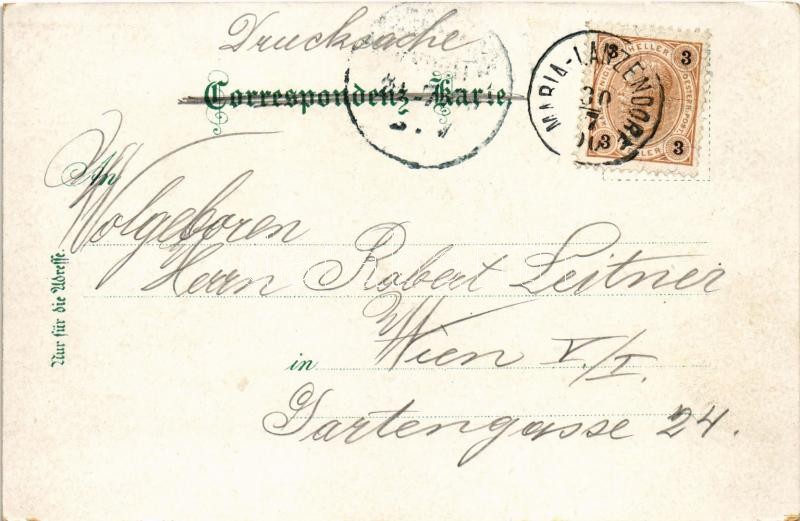 Drucksache
Correspondenz-Karte.
MARIA-LANZENDORF
30
7
3 HELLER 3
3 HELLER 3
An
Wolgeboren
Herrn Robert Leitner
in Wien V/I.
Gartengasse 24.
Nur für die Adresse.